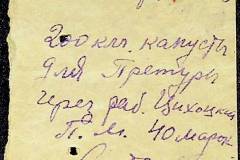 200 клг. капусты
для Претуры
через раб. Цихоцкий
П. М. 40 марок